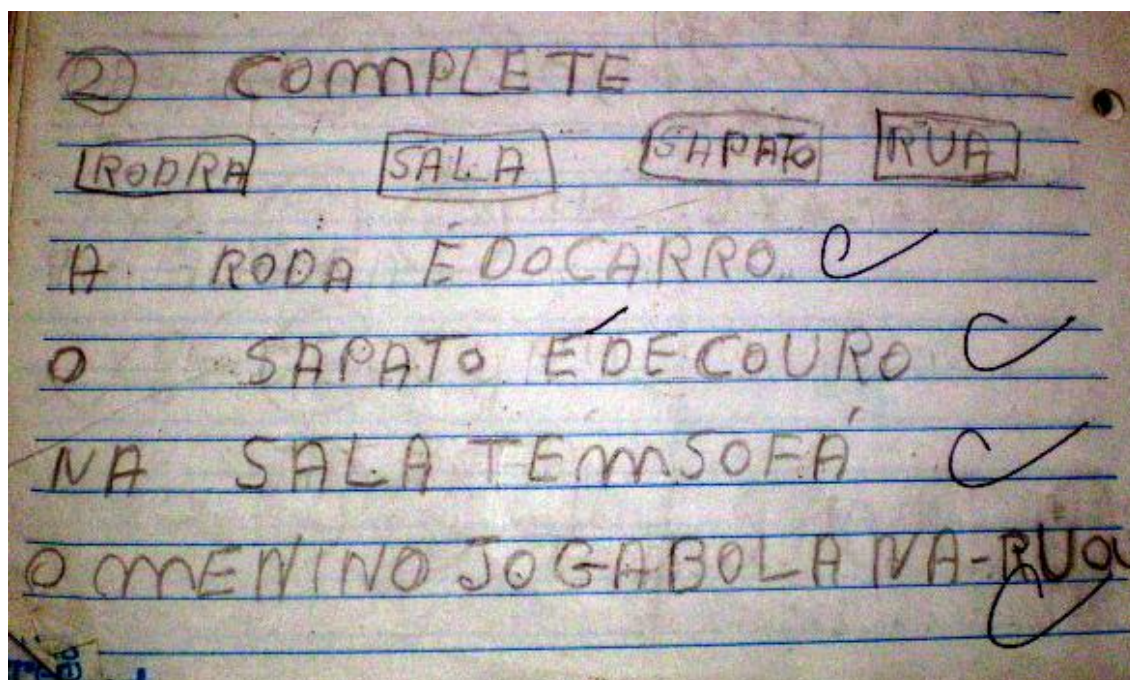 2 COMPLETE
RODRA SALA SAPATO RUA
A RODA É DO CARRO.
O SAPATO É DE COURO
NA SALA TEM SOFÁ
O MENINO JOGA BOLA NA-RUA